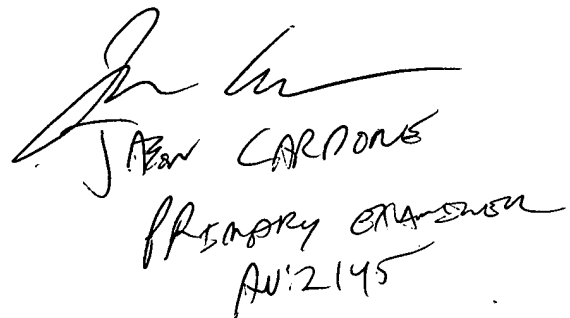 JASON CARDONE
PRIMARY EXAMINER
AU: 2145